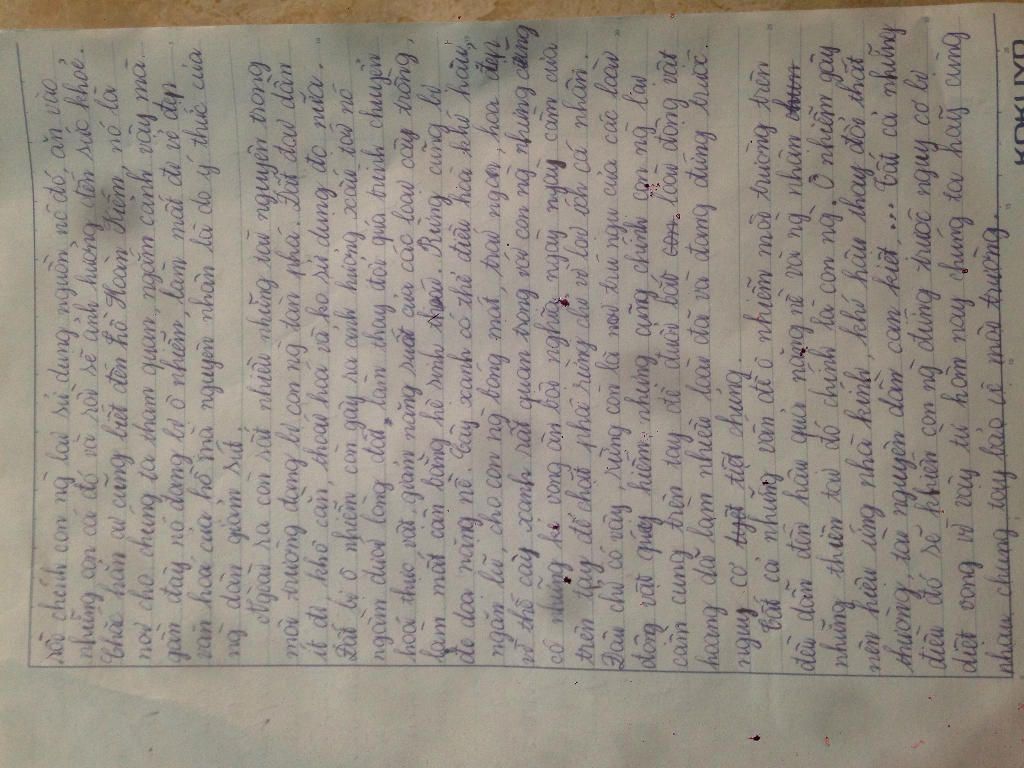 rồi chênh con ng lại sử dụng nguồn nc đó, ăn vào
những con cá đó và rồi sẽ ảnh hưởng đến sức khoẻ.
Chắc hẳn ai cũng biết đến hồ Hoàn Kiếm, nó là
nơi cho chúng ta tham quan, ngắm cảnh vậy mà
gần đây nó đang bị ô nhiễm, làm mất đi vẻ đẹp
văn hoá của hồ mà nguyên nhân là do ý thức của
ng dân giảm sút.
Ngoài ra còn rất nhiều những tài nguyên trong
môi trường đang bị con ng tàn phá. Đất đai dần
ít đi, khô cằn, thoái hoá và ko sử dụng đc nữa.
Đất bị ô nhiễm còn gây ra ảnh hưởng xấu tới nc
ngầm dưới lòng đất, làm thay đổi quá trình chuyển
hoá thực vật, giảm năng suất của các loại cây trồng,
làm mất cân bằng hệ sinh thái. Rừng cũng bị
đe doạ nặng nề. Cây xanh có thể điều hoà khí hậu,
ngăn lũ, cho con ng bóng mát, trái ngon, hoa đẹp
vì thế cây xanh rất quan trọng với con ng nhưng cũng
có những kẻ vong ân bội nghĩa, ngày ngày cầm cưa
trên tay để chặt phá rừng chỉ vì lợi ích cá nhân.
Đâu chỉ có vậy, rừng còn là nơi trú ngụ của các loài
động vật quý hiếm nhưng cũng chính con ng lại
cầm cung trên tay để đuổi bắt loài động vật
hoang dã làm nhiều loài đã và đang đứng trước
nguy cơ tuyệt chủng.
Tất cả những vấn đề ô nhiễm môi trường trên
đều dẫn đến hậu quả nặng nề và ng nhận
những thiên tai đó chính là con ng. Ô nhiễm gây
nên hiệu ứng nhà kính, khí hậu thay đổi thất
thường, tài nguyên dần cạn kiệt,... Tất cả những
điều đó sẽ khiến con ng đứng trước nguy cơ bị
diệt vong vì vậy từ hôm nay chúng ta hãy cùng
nhau chung tay bảo vệ môi trường.
KOKUYO